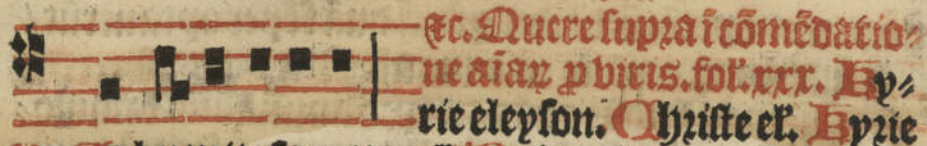 ꝛc. Quere supꝛa ĩ cõmẽdatio⸗
ne aĩaꝝ p viris. fol. xxx. Ky⸗
rie eleyſon. Chꝛiſte el. Kyꝛie